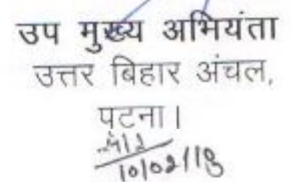 उप मुख्य अभियंता
उत्तर बिहार अंचल,
पटना।
10/02/18